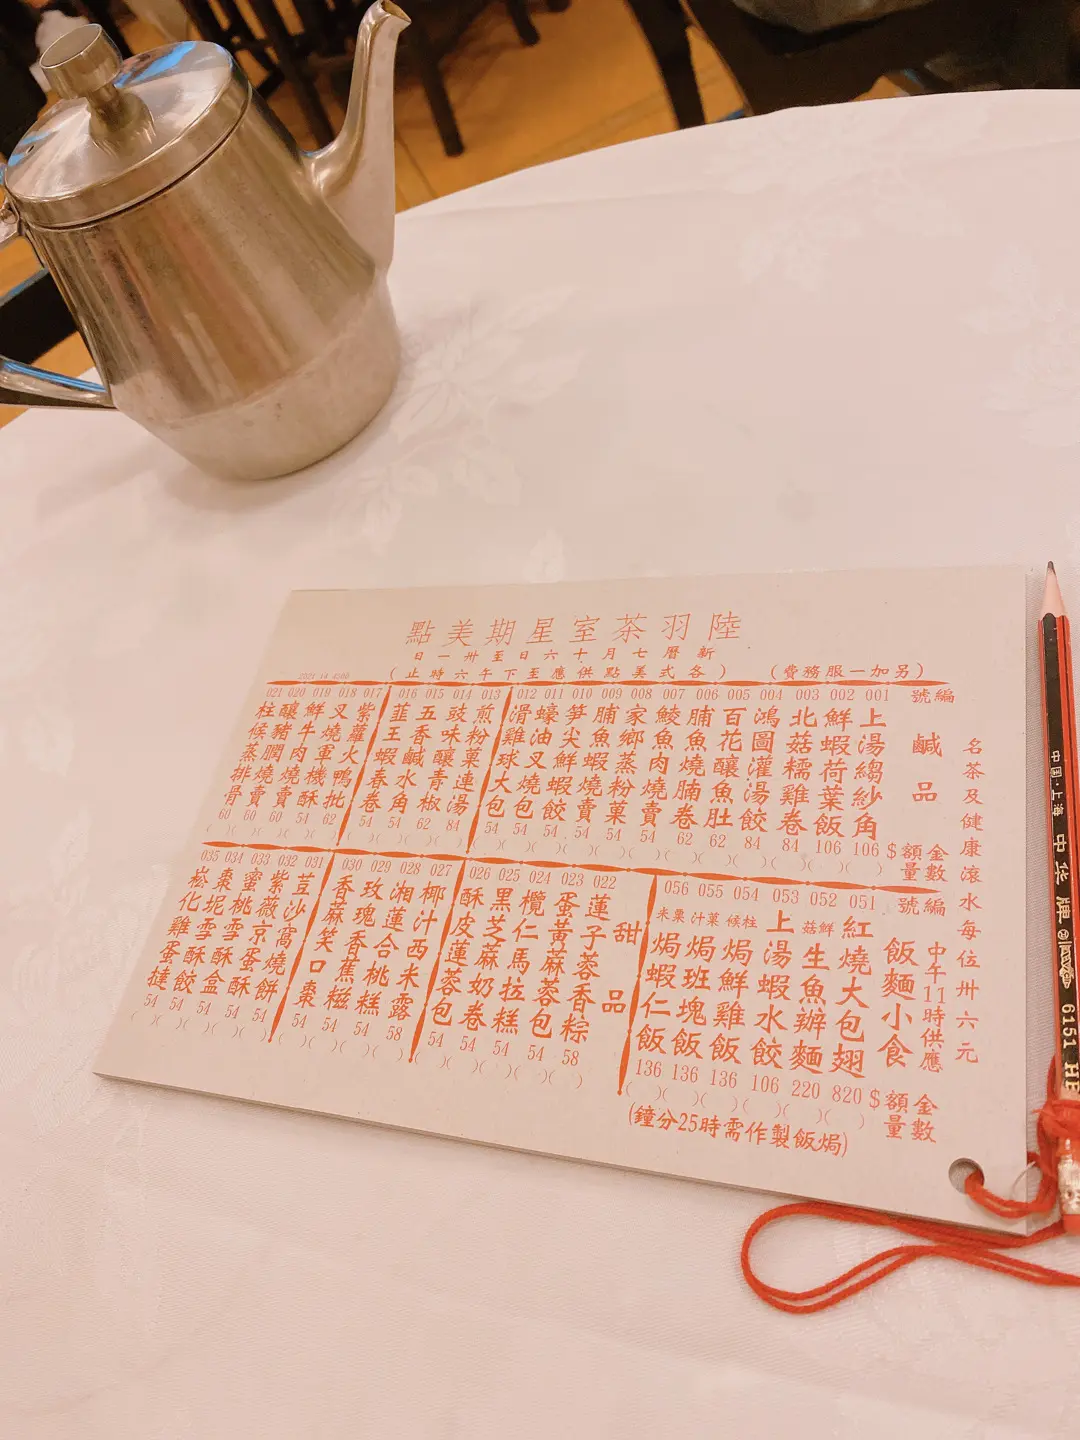 陸羽茶室星期美點
新曆七月十六日至卅一日
(另加一服務費)
(各式美點供應至下午六時止)
名茶及健康滾水每位卅六元
編號
鹹品
金額 $
數量
001 上湯縐紗角 106
002 鮮蝦荷葉飯 106
003 北菇糯雞卷 84
004 鴻圖灌湯餃 84
005 百花釀魚肚 62
006 脯魚燒腩卷 62
007 鯪魚肉燒賣 54
008 家鄉蒸粉菓 54
009 脯魚蝦燒賣 54
010 笋尖鮮蝦餃 54
011 蠔油叉燒包 54
012 滑雞球大包 54
013 煎粉菓連湯 84
014 豉味釀青椒 62
015 五香鹹水角 54
016 韮王蝦春卷 54
017 紫蘿火鴨批 62
018 叉燒軍機酥 54
019 鮮牛肉燒賣 60
020 釀豬膶燒賣 60
021 柱候蒸排骨 60
編號
中午11時供應
飯麵小食
金額 $
數量
051 紅燒大包翅 820
052 鮮菇生魚辦麵 220
053 上湯蝦水餃 106
054 柱候焗鮮雞飯 136
055 菓汁焗班塊飯 136
056 粟米焗蝦仁飯 136
(焗飯製作需時25分鐘)
甜品
022 蓮子蓉香粽 58
023 蛋黃蔴蓉包 54
024 欖仁馬拉糕 54
025 黑芝蔴奶卷 54
026 酥皮蓮蓉包 54
027 椰汁西米露 58
028 湘蓮合桃糕 54
029 玫瑰香蕉糍 54
030 香蔴笑口棗 54
031 荳沙窩燒餅 54
032 紫薇京蛋酥 54
033 蜜桃雪酥盒 54
034 棗坭雪酥餃 54
035 崧化雞蛋撻 54
中国·上海 中华牌 6151 HB